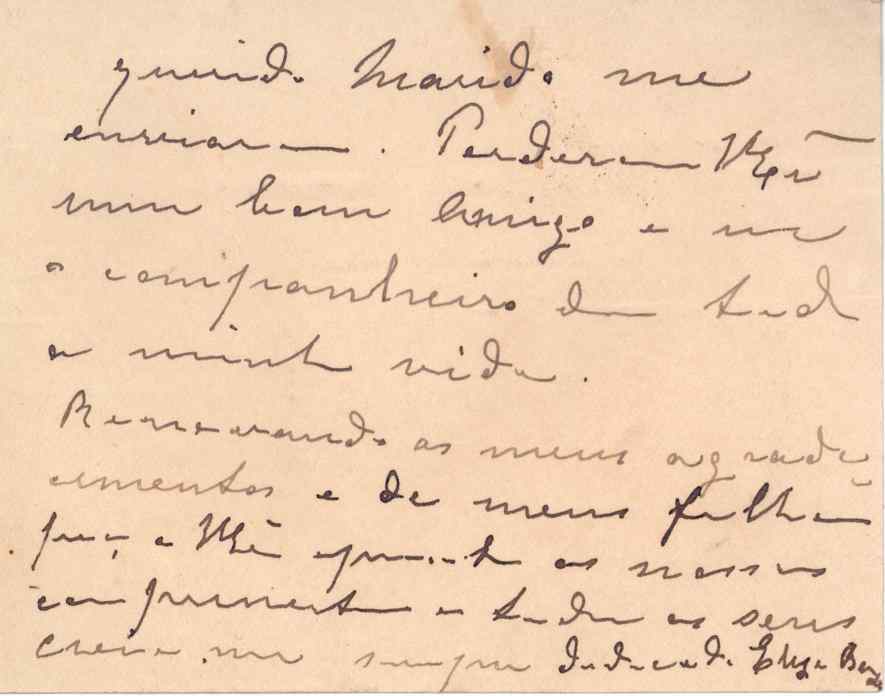 querido Marido me
enviaram. Perderam VExª
um bom Amigo e eu
o companheiro de toda
a minha vida.
Renovando os meus agrade
cimentos e de meus filhos
peço a VExª os nossos
cumprimentos a todos os seus
creia-me sempre dedicada Eliza